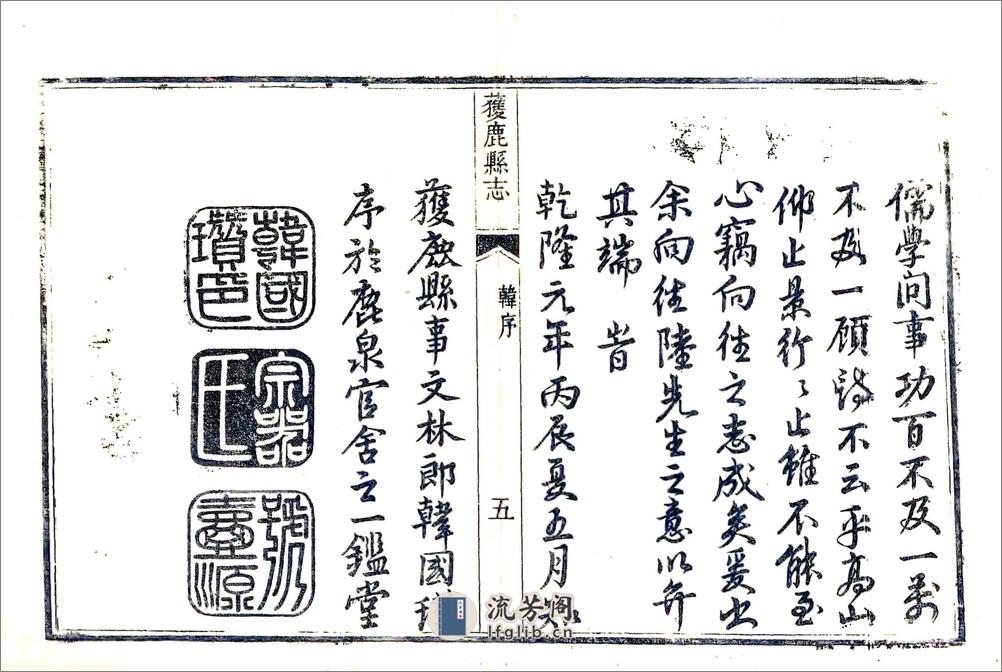 儒學問事功百不及一萬
不及一顧詩不云乎高山
仰止景行〻止雖不能至
心竊向往之志成矣爰出
余向往陸先生之意以弁
其端 旹
乾隆元年丙辰夏五月知
獲鹿縣志
韓序
五
獲鹿縣事文林郎韓國瓚
序於鹿泉官舍之一鑑堂
韓國瓚印
宗器氏
號臺源
流芳阁
lfglib.cn